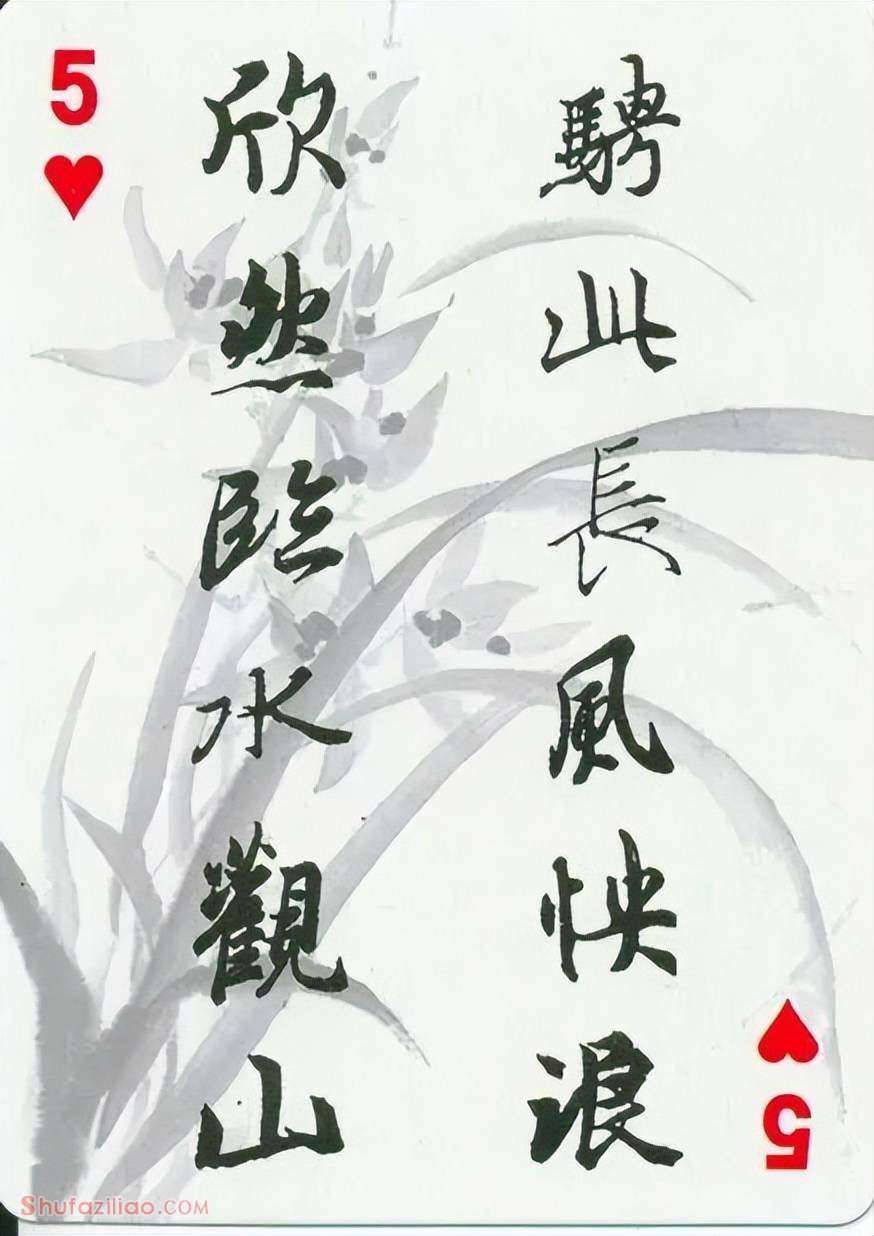 5
騁此長風快浪
欣然臨水觀山
5
Shufaziliao.com